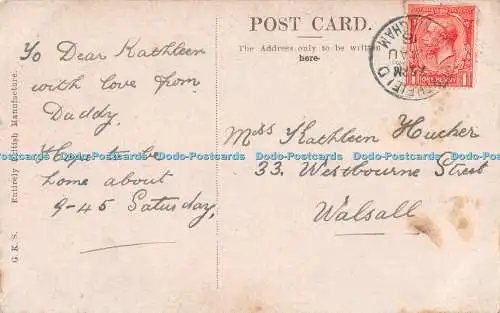 POST CARD.
The Address only to be written
here
To Dear Kathleen
with love from
Daddy.
Hope to be
home about
9-45 Saturday,
Miss Kathleen Hucker
33. Westbourne Street
Walsall
G. K. S. Entirely British Manufacture.
ONE PENNY
Dodo-Postcards Dodo-Postcards Dodo-Postcards Dodo-Postcards Dodo-Postcards